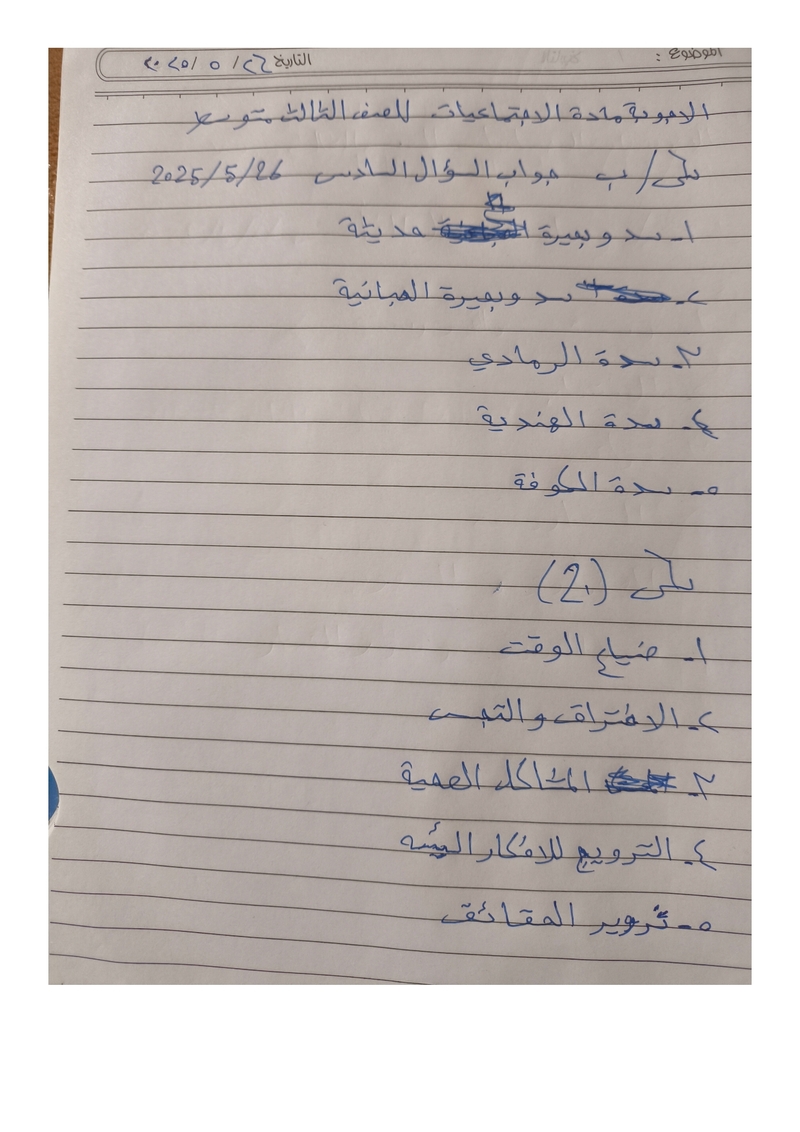 الموضوع : التاريخ ٢٦ / ٥ / ٢٠٢٥
الاجوبة مادة الاجتماعيات للصف الثالث متوسط
س٦/ ب جواب السؤال السادس 2025/5/26
١- سد وبحيرة حديثة
٢- سد وبحيرة الحبانية
٣- سدة الرمادي
٤- سدة الهندية
٥- سدة الكوفة
(2)
١- ضياع الوقت
٢- الاختراق والتجسس
٣- المشاكل الصحية
٤- الترويج للافكار السيئة
٥- تزوير الحقائق